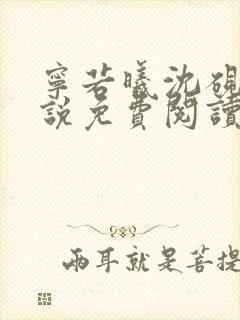 寧若曦沈硯
說免費閱讀
兩耳就是菩提